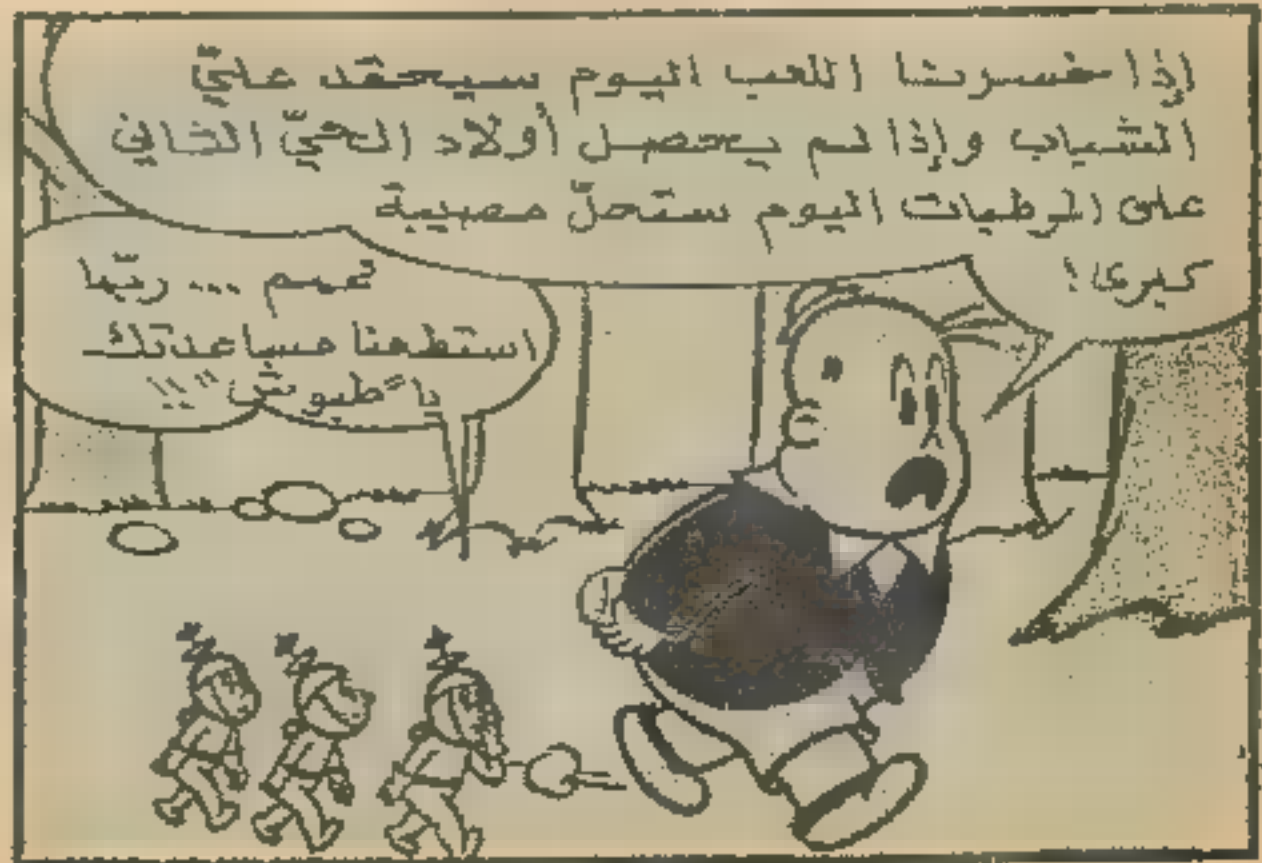 إذا خسرنا اللعب اليوم سيحقد عليّ
الشباب وإذا لم يحصل أولاد الحيّ الثاني
على الرطبات اليوم ستحلّ مصيبة
كبرى!
... ربّما
استطعنا مساعدتك
يا "طبوش"!!